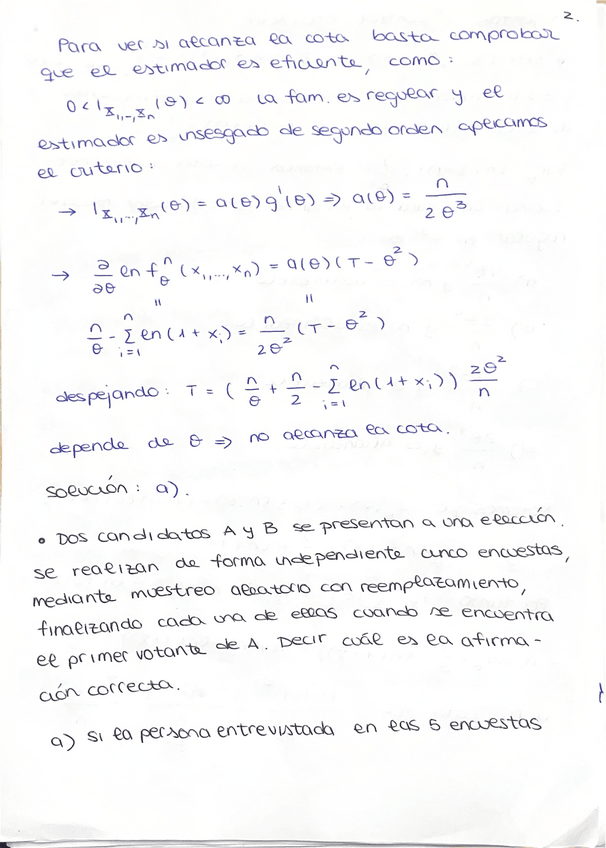 2.
Para ver si alcanza la cota basta comprobar
que el estimador es eficiente, como:
0 < I_{X_1,..,X_n}(θ) < ∞ la fam. es regular y el
estimador es insesgado de segundo orden aplicamos
el criterio:
→ I_{X_1,...,X_n}(θ) = a(θ) g'(θ) ⇒ a(θ) = n / 2θ^3
→ ∂/∂θ ln f_θ^n (x_1,...,x_n) = a(θ)(T - θ^2)
॥ ॥
n/θ - Σ_{i=1}^n ln(1+x_i) = n/2θ^2 (T - θ^2)
despejando: T = (n/θ + n/2 - Σ_{i=1}^n ln(1+x_i)) 2θ^2/n
depende de θ ⇒ no alcanza la cota.
solución: a).
• Dos candidatos A y B se presentan a una elección.
se realizan de forma independiente cinco encuestas,
mediante muestreo aleatorio con reemplazamiento,
finalizando cada una de ellas cuando se encuentra
el primer votante de A. Decir cuál es la afirma-
ción correcta.
a) si la persona entrevistada en las 5 encuestas